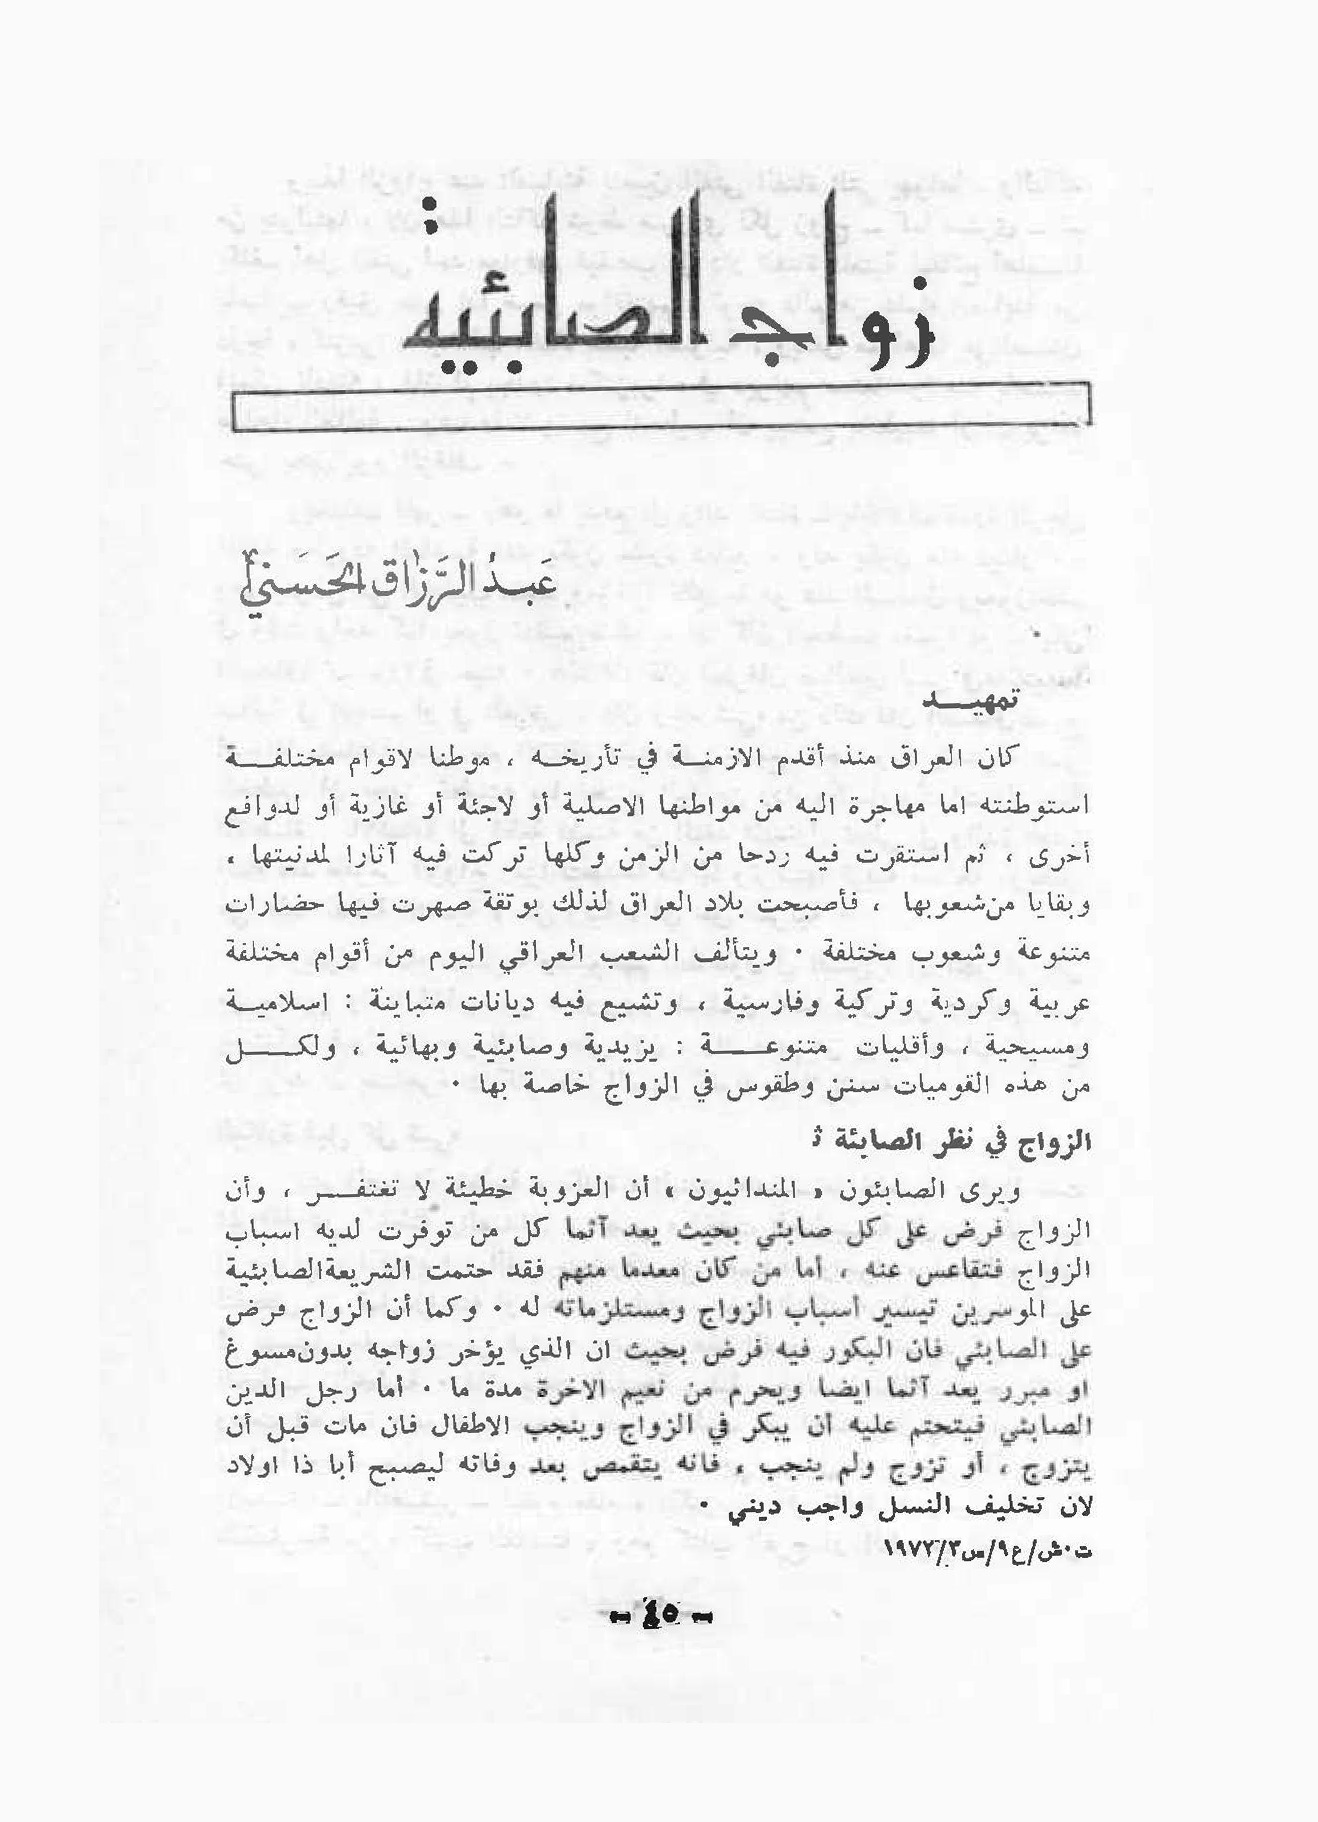 زواج الصابئية
عَبدُ الرَّزاق الحَسَني
تمهيـــد
كان العراق منذ أقدم الازمنــة في تأريخــه ، موطنا لاقوام مختلفــة
استوطنته اما مهاجرة اليه من مواطنها الاصلية أو لاجئة أو غازية أو لدوافع
أخرى ، ثم استقرت فيه ردحا من الزمن وكلها تركت فيه آثارا لمدنيتها ،
وبقايا من شعوبها ، فأصبحت بلاد العراق لذلك بوتقة صهرت فيها حضارات
متنوعة وشعوب مختلفة ٠ ويتألف الشعب العراقي اليوم من أقوام مختلفة
عربية وكردية وتركية وفارسية ، وتشيع فيه ديانات متباينة : اسلاميــة
ومسيحية ، وأقليات متنوعـــة : يزيدية وصابئية وبهائية ، ولكـــل
من هذه القوميات سنن وطقوس في الزواج خاصة بها ٠
الزواج في نظر الصابئة :
ويرى الصابئون « المندائيون » أن العزوبة خطيئة لا تغتفــر ، وأن
الزواج فرض على كل صابئي بحيث يعد آثما كل من توفرت لديه اسباب
الزواج فتقاعس عنه ، أما من كان معدما منهم فقد حتمت الشريعة الصابئية
على الموسرين تيسير أسباب الزواج ومستلزماته له ٠ وكما أن الزواج فرض
على الصابئي فان البكور فيه فرض بحيث ان الذي يؤخر زواجه بدون مسوغ
او مبرر يعد آثما ايضا ويحرم من نعيم الاخرة مدة ما ٠ أما رجل الدين
الصابئي فيتحتم عليه ان يبكر في الزواج وينجب الاطفال فان مات قبل أن
يتزوج ، أو تزوج ولم ينجب ، فانه يتقمص بعد وفاته ليصبح أبا ذا اولاد
لان تخليف النسل واجب ديني ٠
ت٠ش/ع٩/س٣/١٩٧٢
- ٤٥ -